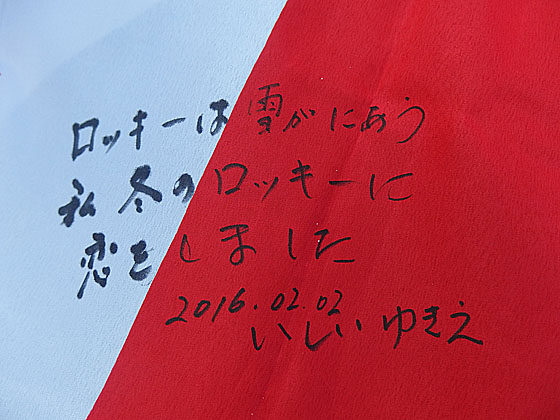 ロッキーは雪がにあう
私冬のロッキーに
恋をしました
2016.02.02
いしい ゆきえ